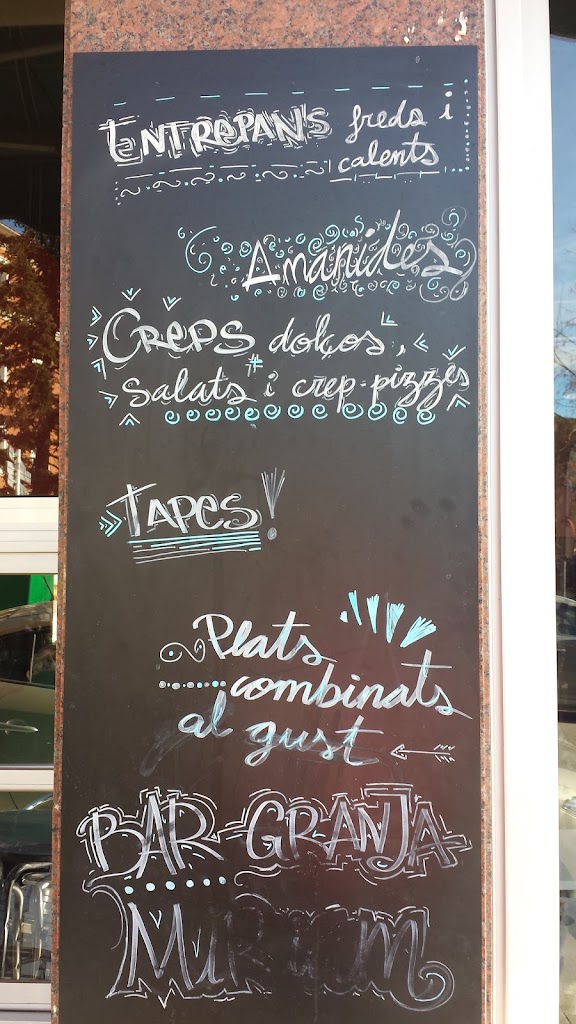 ENTREPANS freds i
calents
Amanides
CREPS dolços,
salats i crep-pizzes
TAPES!
Plats
combinats
al gust
BAR-GRANJA
MIRIAM